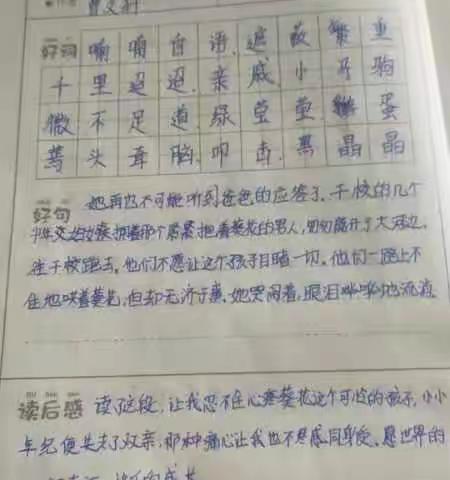 好词 喃喃自语、遮蔽 繁重
千里迢迢、亲戚、小牙狗
微不足道、绿莹莹、蛋
茑头耷脑、叩击、黑晶晶
好句 她再也不可能听到爸爸的应答了,干校的几个
中年妇女轮换抱着那个紧紧抱着葵花的男人,匆匆离开了大河边,
往干校跑去,他们不愿让这个孩子目睹一切。他们一路上不
住地哄着葵花,但却无济于事,她哭闹着,眼泪哗哗地流淌
读后感 读了这段,让我忍不住心疼葵花这个可怜的孩子,小小
年纪便失去了双亲,那种痛心让我也不禁感同身受,愿世界的